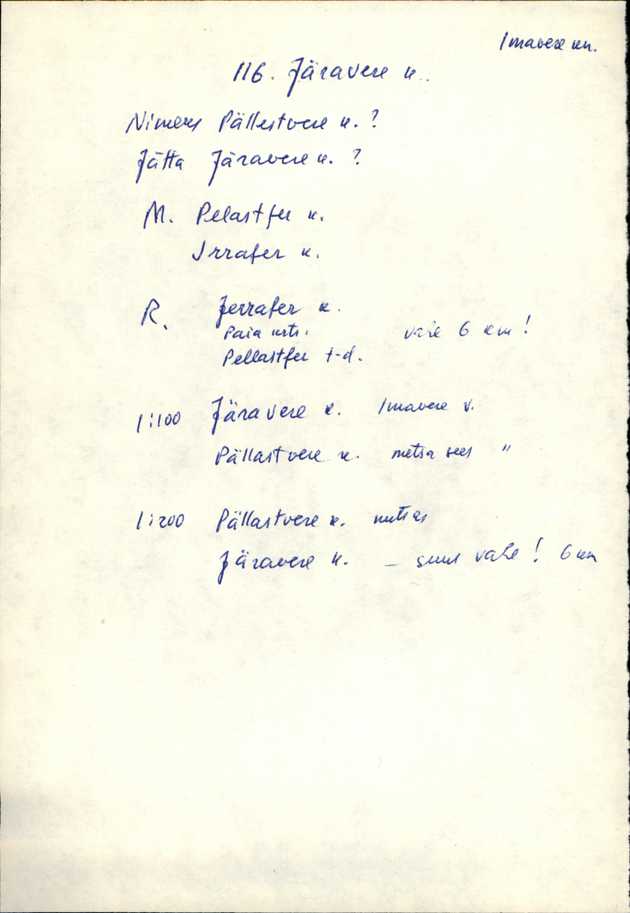 Imavere kn.
116. Järavere k.
Nimeks Pällestvere k. ?
Jätta Järavere k. ?
M. Pelastfer k.
Irrafer k.
R. Jerrafer k.
Paia
vahe 6 km!
Pellastfer t-d.
1:100 Järavere k. Imavere v.
Pällastvere k. metsa sees "
1:200 Pällastvere k. metsas
Järavere k. – suur vahe! 6 km